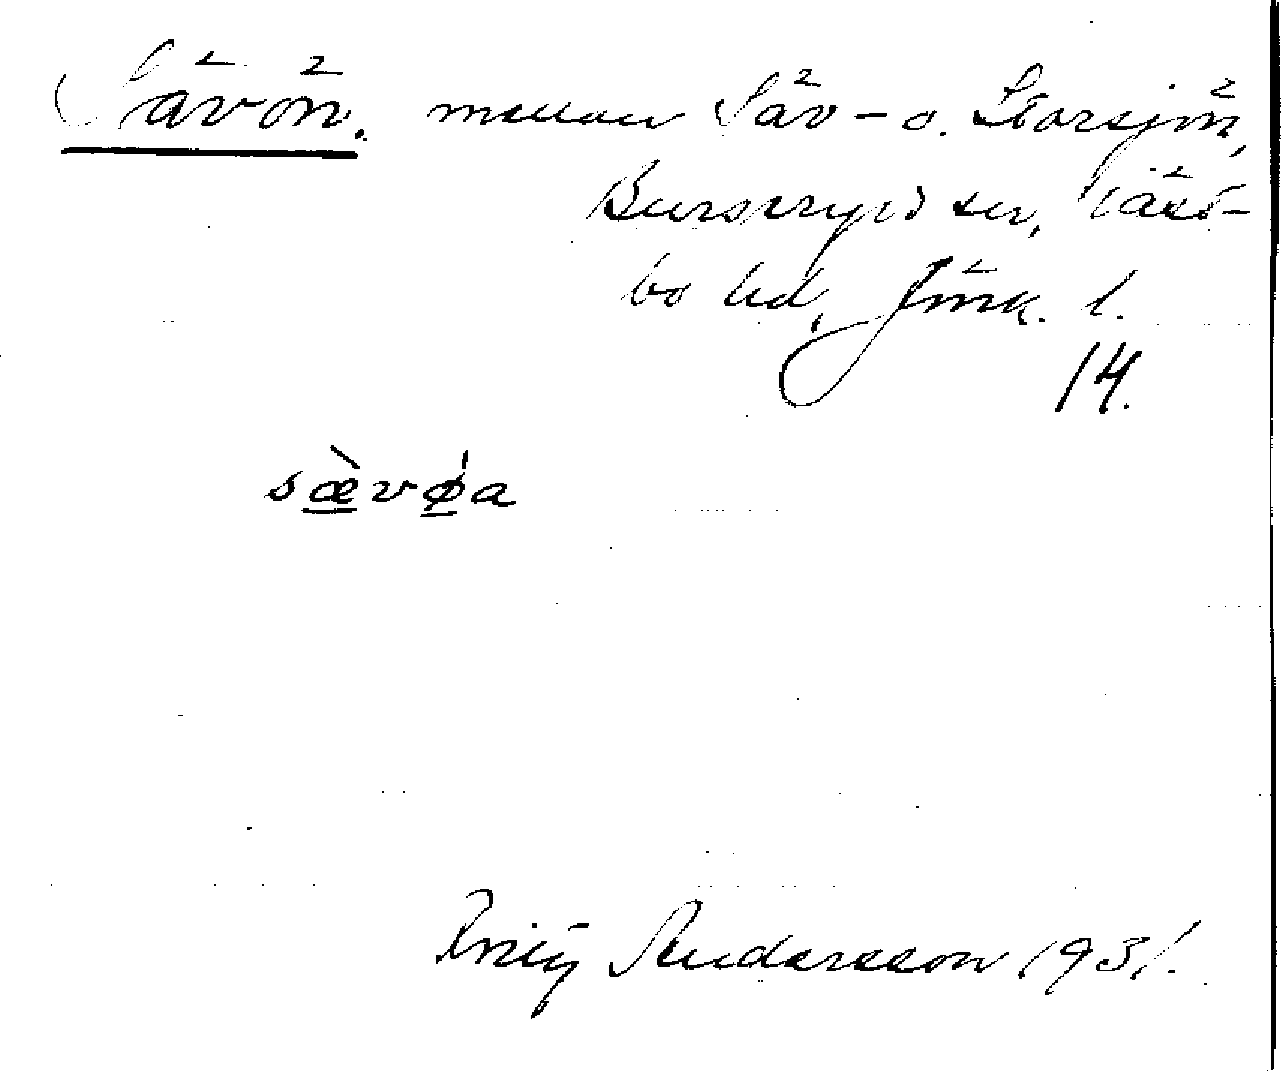 Sävön. mellan Säv- o. Storsjön,
Burseryds sn, Väst-
bo hd, Jönk. l.
14.
sæ̀vǿa
Andersson 1931.